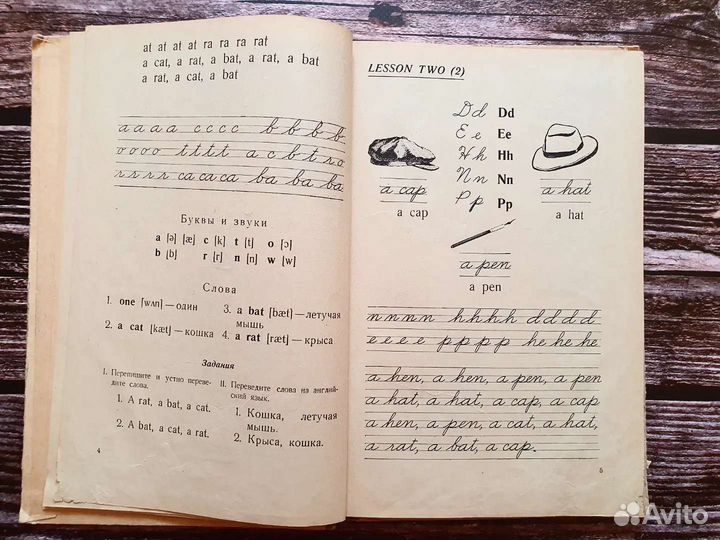 at at at at ra ra ra rat
a cat, a rat, a bat, a rat, a bat
a rat, a cat, a bat
a a a a c c c c b b b b
o o o o t t t t a c b t r o
r r r r ca ca ca ba ba ba
Буквы и звуки
a [ə] [æ] c [k] t [t] o [ɔ]
b [b] r [r] n [n] w [w]
Слова
1. one [wʌn]—один
2. a cat [kæt]—кошка
3. a bat [bæt]—летучая
мышь
4. a rat [ræt]—крыса
Задания
I. Перепишите и устно переве-
дите слова.
1. A rat, a bat, a cat.
2. A bat, a cat, a rat.
II. Переведите слова на англий-
ский язык.
1. Кошка, летучая
мышь.
2. Крыса, кошка.
4
LESSON TWO (2)
Dd Dd
Ee Ee
Hh Hh
Nn Nn
Pp Pp
a cap
a cap
a hat
a hat
a pen
a pen
n n n n n h h h h d d d d
e e e e p p p p p he he he
a hen, a hen, a pen, a pen
a hat, a hat, a cap, a cap
a hen, a pen, a cat, a hat,
a rat, a bat, a cap.
5
Avito